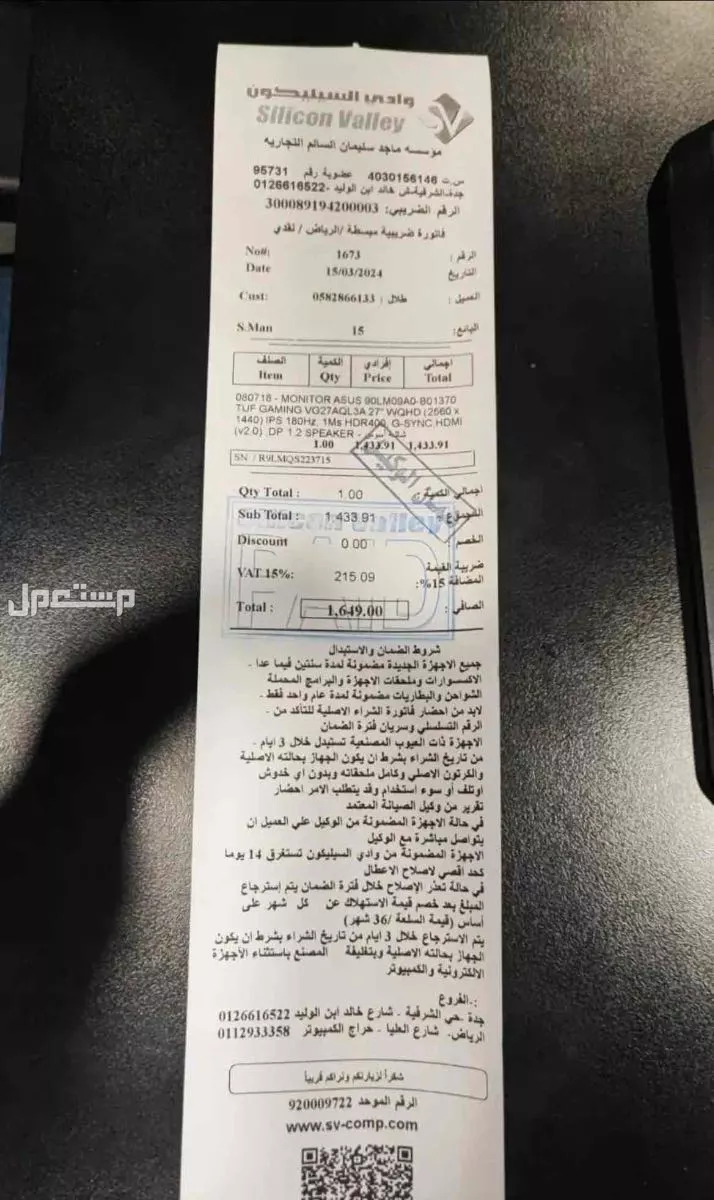 وادي السيليكون
Silicon Valley
SV
مؤسسه ماجد سليمان السالم التجاريه
س.ت 4030156146 عضوية رقم 95731
جدة-الشرقية-ش خالد ابن الوليد -0126616522
الرقم الضريبي: 300089194200003
فاتورة ضريبية مبسطة /الرياض / نقدي
No#: 1673 الرقم :
Date 15/03/2024 التاريخ
Cust: طلال / 0582866133 العميل :
S.Man 15 البائع:
الصنف الكمية إفرادي اجمالي
Item Qty Price Total
080718 - MONITOR ASUS 90LM09A0-B01370
TUF GAMING VG27AQL3A 27" WQHD (2560 x
1440) IPS 180Hz, 1Ms HDR400, G-SYNC,HDMI
(v2.0) ,DP 1.2 SPEAKER -
1.00 1,433.91 1,433.91
SN / R9LMQS223715
Qty Total : 1.00 اجمالي الكمية :
Sub Total : 1,433.91 المجموع :
Discount 0.00 الخصم :
VAT 15%: 215.09 ضريبة القيمة المضافة 15%:
Total : 1,649.00 الصافي :
PAID
شروط الضمان والاستبدال
جميع الاجهزة الجديدة مضمونة لمدة سنتين فيما عدا -
الاكسسوارات وملحقات الاجهزة والبرامج المحملة
الشواحن والبطاريات مضمونة لمدة عام واحد فقط -
لابد من احضار فاتورة الشراء الاصلية للتأكد من -
الرقم التسلسلي وسريان فترة الضمان
الاجهزة ذات العيوب المصنعية تستبدل خلال 3 ايام -
من تاريخ الشراء بشرط ان يكون الجهاز بحالته الاصلية
والكرتون الاصلي وكامل ملحقاته وبدون اي خدوش
اوتلف أو سوء استخدام وقد يتطلب الامر احضار
تقرير من وكيل الصيانة المعتمد
في حالة الاجهزة المضمونة من الوكيل علي العميل ان
يتواصل مباشرة مع الوكيل
الاجهزة المضمونة من وادي السيليكون تستغرق 14 يوما
كحد اقصي لاصلاح الاعطال
في حالة تعذر الإصلاح خلال فترة الضمان يتم إسترجاع
المبلغ بعد خصم قيمة الاستهلاك عن كل شهر على
أساس (قيمة السلعة /36 شهر)
يتم الاسترجاع خلال 3 ايام من تاريخ الشراء بشرط ان يكون
الجهاز بحالته الاصلية وبتغليفة المصنع باستثناء الأجهزة
الالكترونية والكمبيوتر
الفروع.:
جدة -حي الشرفية - شارع خالد ابن الوليد 0126616522
الرياض- شارع العليا - حراج الكمبيوتر 0112933358
شكراً لزيارتكم ونراكم قريباً
الرقم الموحد 920009722
www.sv-comp.com
مستعمل